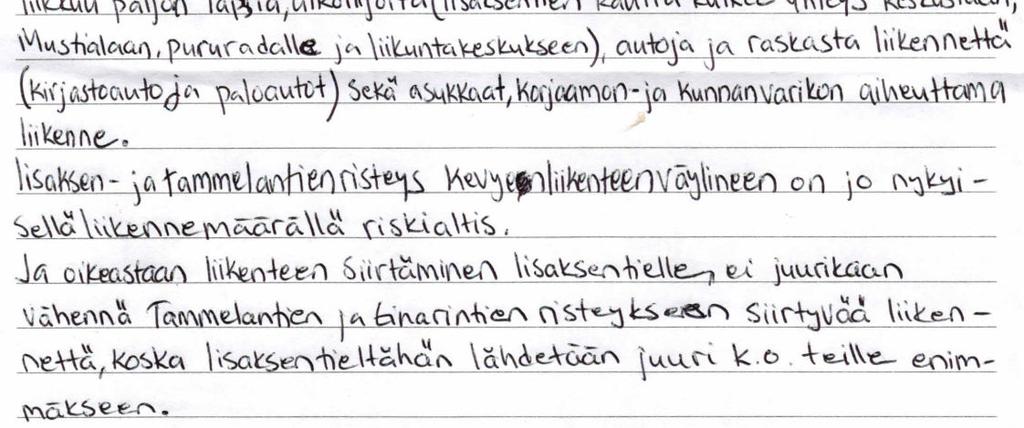 liikkuu paljon lapsia, ulkoilijoita (lisaksentien kautta kulkee yhteys keskustaan,
Mustialaan, pururadalle ja liikuntakeskukseen), autoja ja raskasta liikennettä
(kirjastoauto ja paloautot) sekä asukkaat, korjaamon- ja kunnanvarikon aiheuttama
liikenne.
lisaksen- ja tammelantien risteys kevyeenliikenteen väylineen on jo nykyi-
sellä liikennemäärällä riskialtis.
Ja oikeastaan liikenteen siirtäminen lisaksentielle, ei juurikaan
vähennä Tammelantien ja Einarintien risteykseen siirtyvää liiken-
nettä, koska lisaksentieltähän lähdetään juuri k.o. teille enim-
mäkseen.